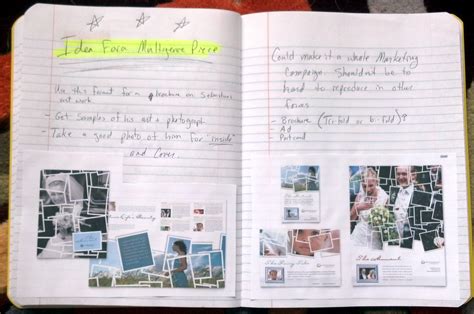 Idea For a Multigenre Piece
Use this format for a brochure on Sebastian's
art work
- Get Samples of his art & photograph
- Take a good photo of him for "inside"
and Cover.
Could make it a whole Marketing
Campaign Shouldn't be to
hard to reproduce in other
forms
- Brochure (Tri-fold or bi-fold)?
- Ad
- Postcard